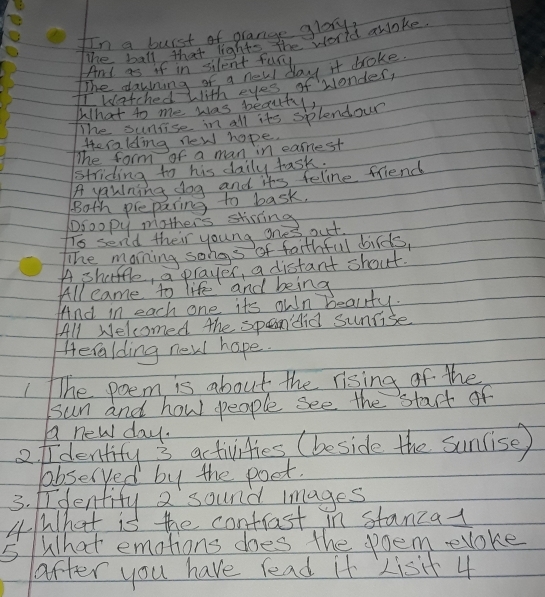 In a burst of orange glory,
The ball that lights the world awoke.
And as if in silent fury
The dawning of a new day it broke.
I watched with eyes of wonder,
What to me was beauty,
The sunrise in all its splendour
Heralding new hope.
The form of a man in earnest
Striding to his daily task.
A yawning dog and its feline friend
Both preparing to bask.
Droopy mothers stirring
To send their young ones out.
The morning songs of faithful birds,
A shuffle, a prayer, a distant shout.
All came to life and being
And in each one its own beauty.
All welcomed the splendid sunrise
Heralding new hope.
1 The poem is about the rising of the
sun and how people see the start of
a new day.
2. Identify 3 activities (beside the sunrise)
observed by the poet.
3. Identify 2 sound images
4 What is the contrast in stanza 1
5 What emotions does the poem evoke
after you have read it List 4